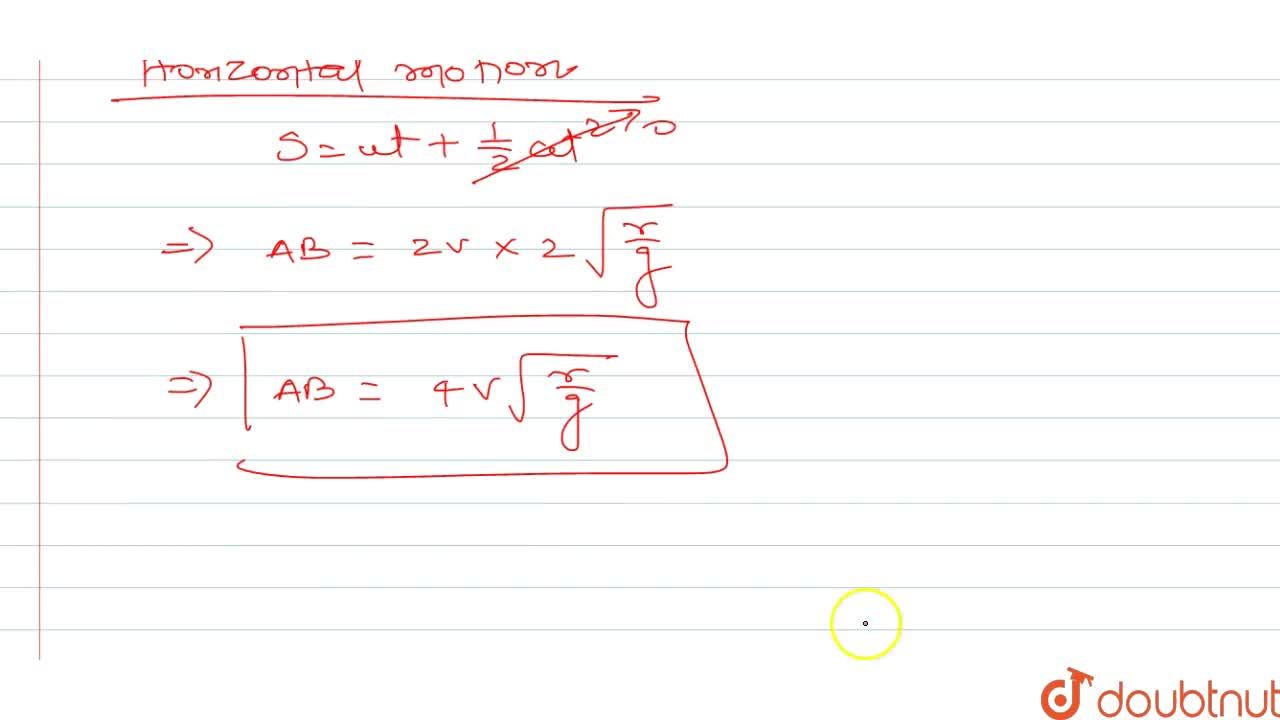 Horizontal motion
S = ut + 1/2 at² → 0
⇒ AB = 2v × 2√(r/g)
⇒ AB = 4v√(r/g)
doubtnut